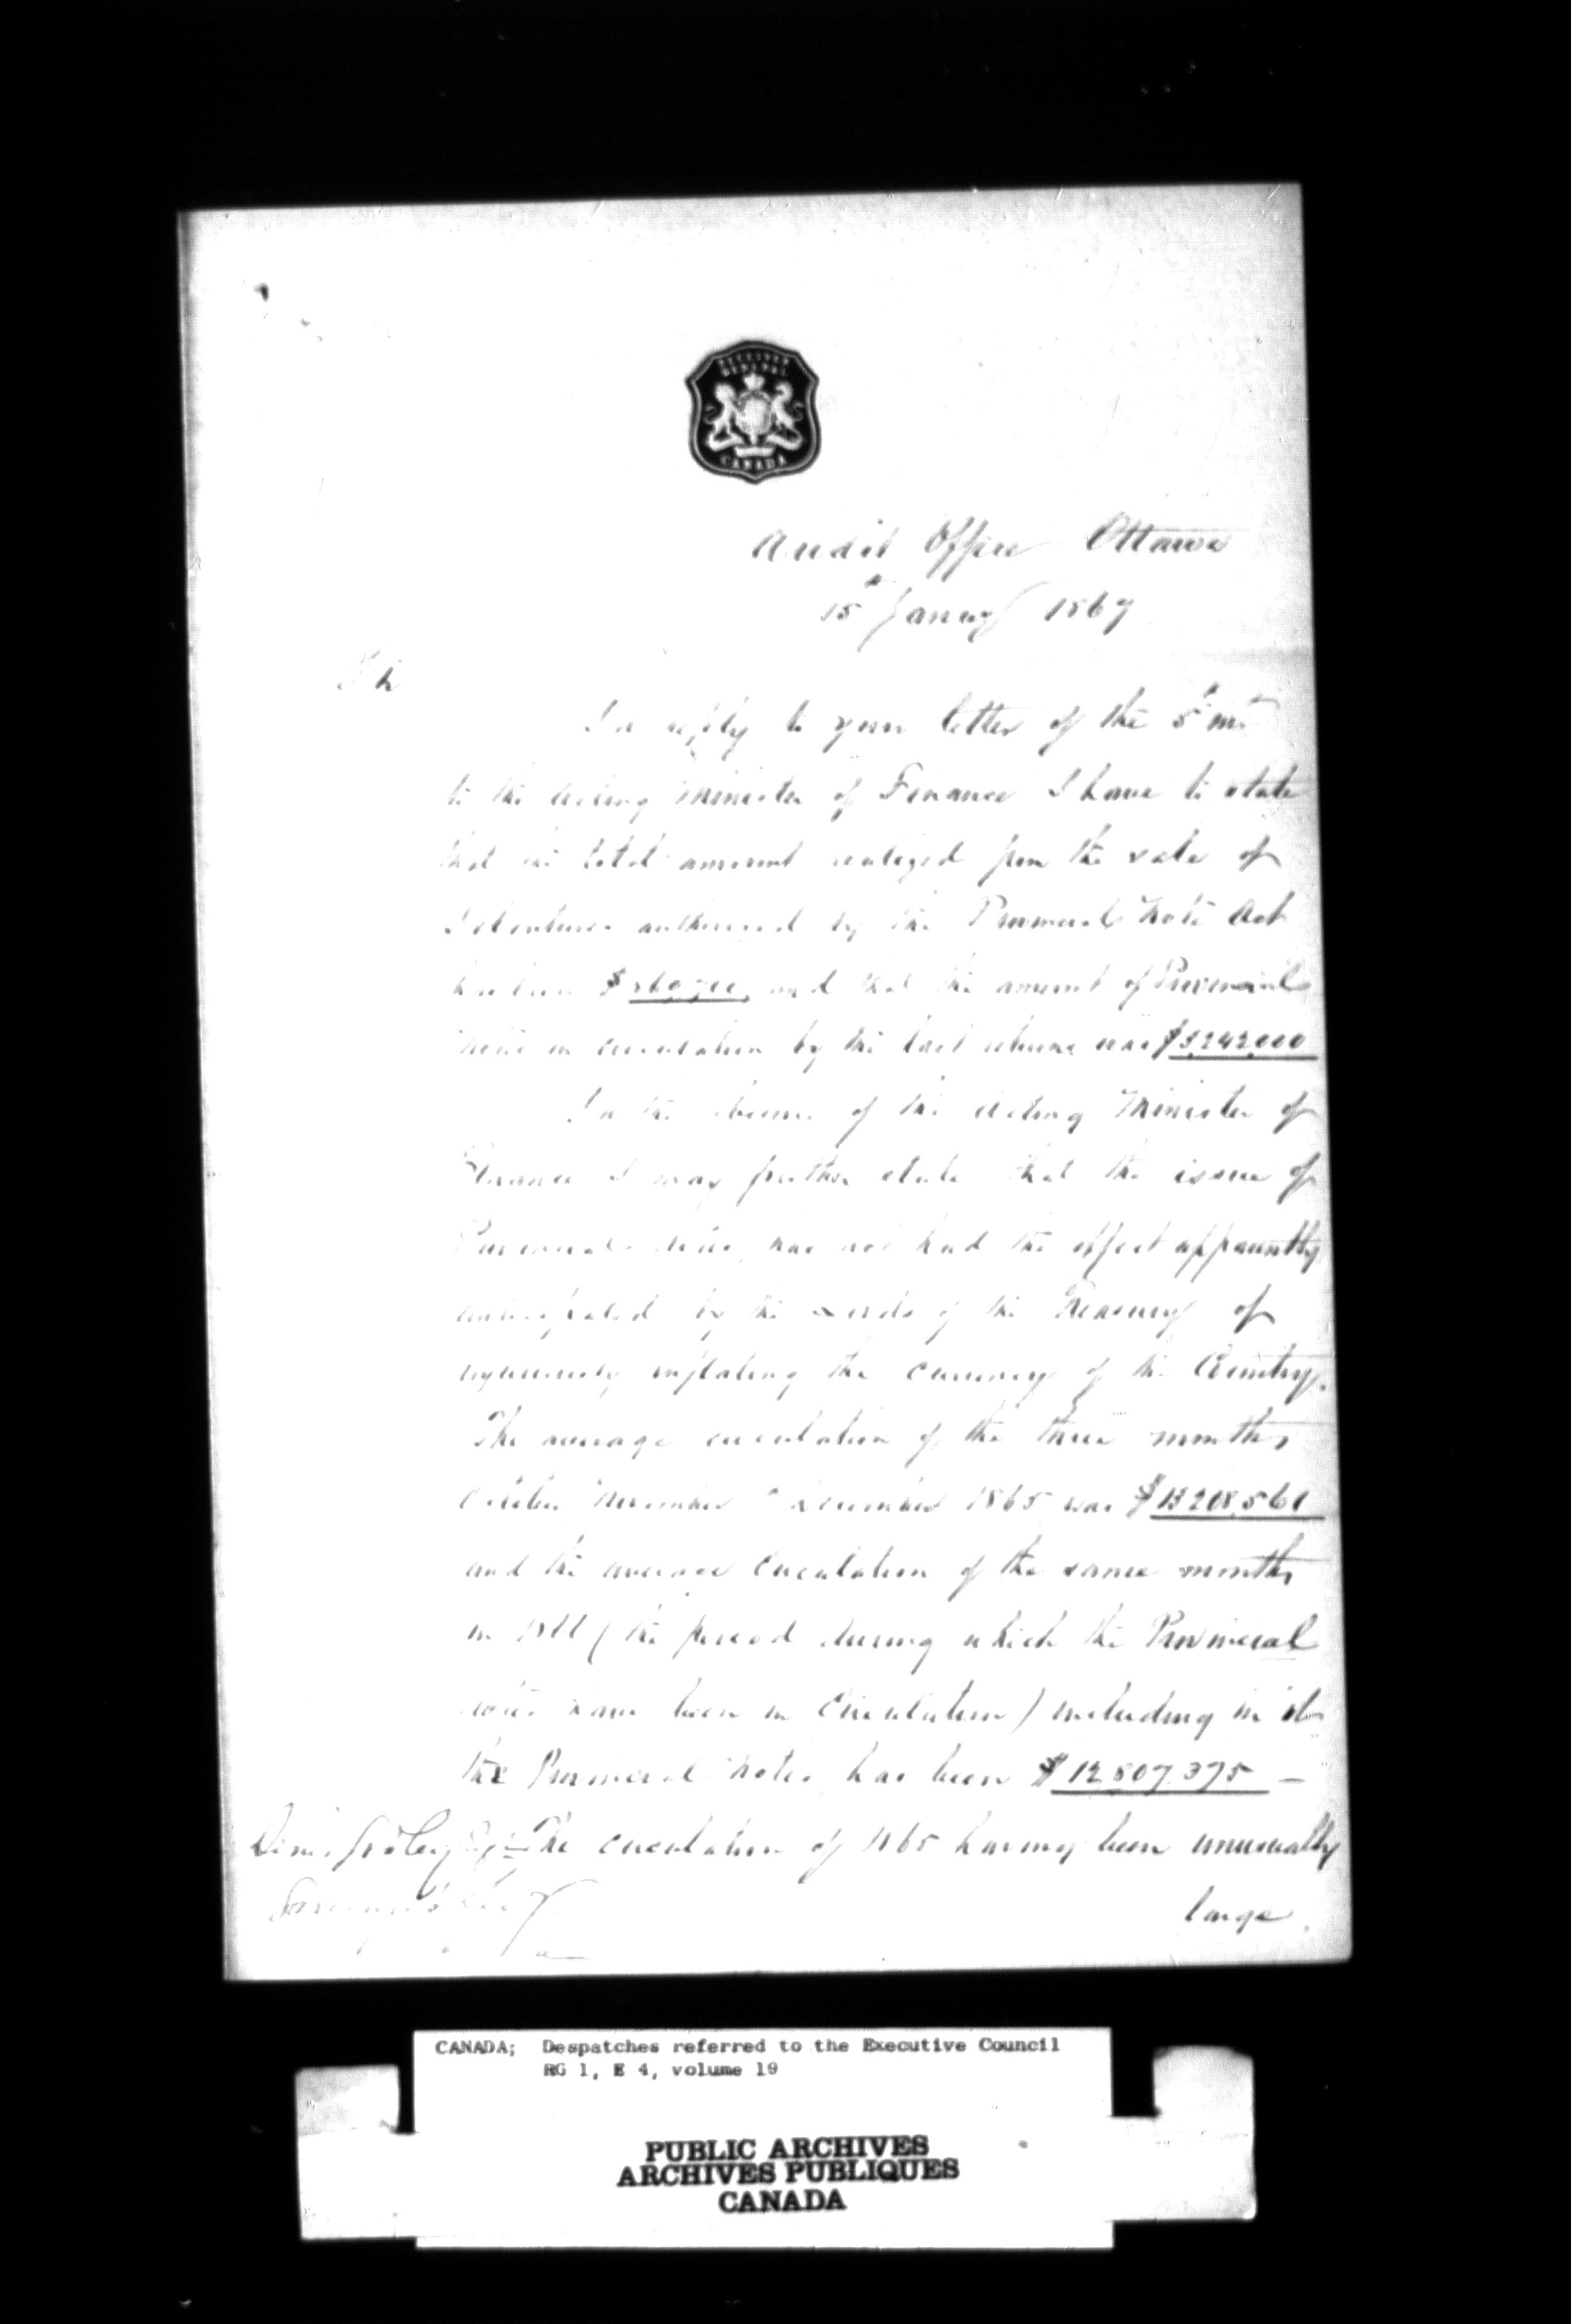 RECEIVER
GENERAL
CANADA
Audit Office Ottawa
15th January 1867
Sir
In reply to your letter of the 5th inst
to the Acting Minister of Finance I have to state
that the total amount realized from the sale of
Debentures authorized by the Provincial Note Act
has been and that the amount of Provincial
Notes in circulation by the last returns was $3,242,000
In the absence of the Acting Minister of
Finance I may further state that the issue of
Provincial Notes has not had the effect apparently
anticipated by the Lords of the Treasury of
injuriously inflating the currency of the Country.
The average circulation of the three months
October November & December 1865 was $13,208,561
and the average Circulation of the same months
in 1866 (the period during which the Provincial
Notes have been in Circulation) including in it
the Provincial Notes, has been $12,807,375 —
The circulation of 1865 having been unusually
large
Denis Godley Esq
Governor's Secy
CANADA; Despatches referred to the Executive Council
RG 1, E 4, volume 19
PUBLIC ARCHIVES
ARCHIVES PUBLIQUES
CANADA